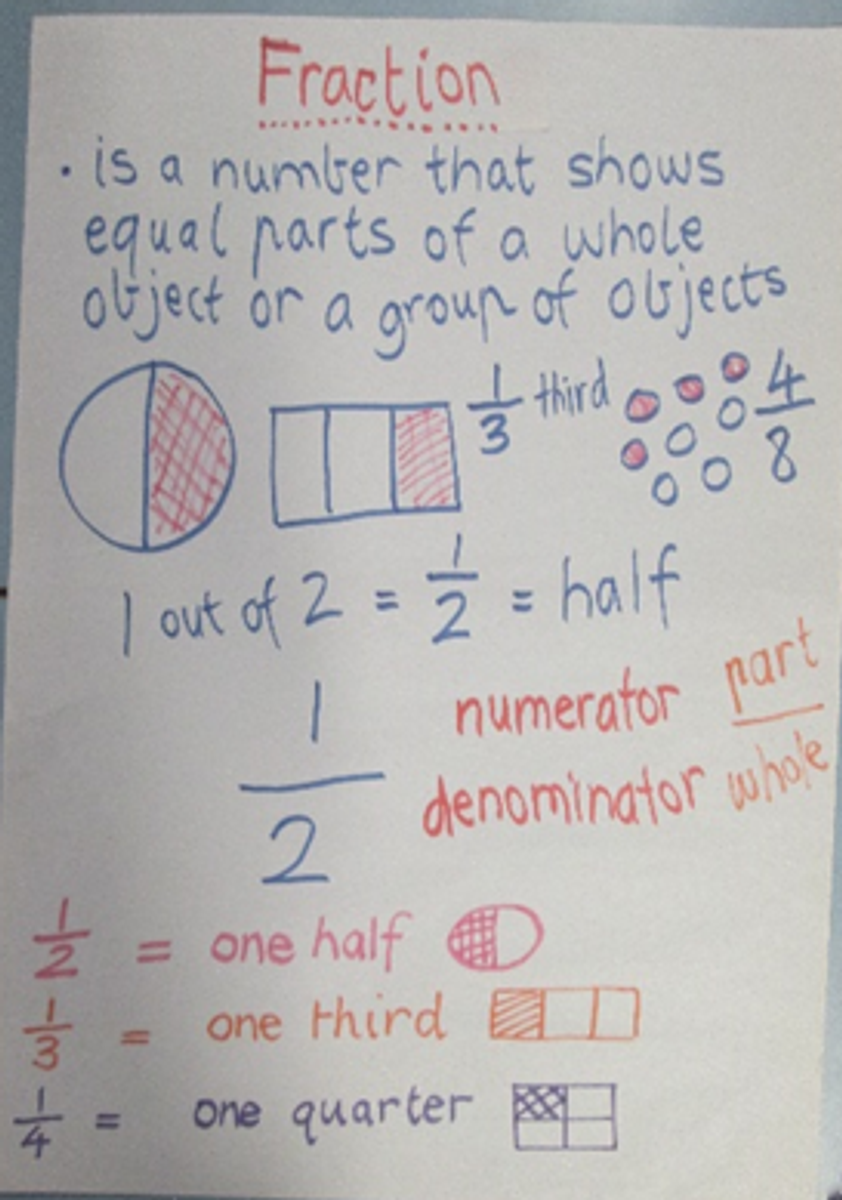 Fraction
· is a number that shows
equal parts of a whole
object or a group of objects
1/3 third 4/8
1 out of 2 = 1/2 = half
1/2 numerator part
denominator whole
1/2 = one half
1/3 = one third
1/4 = one quarter